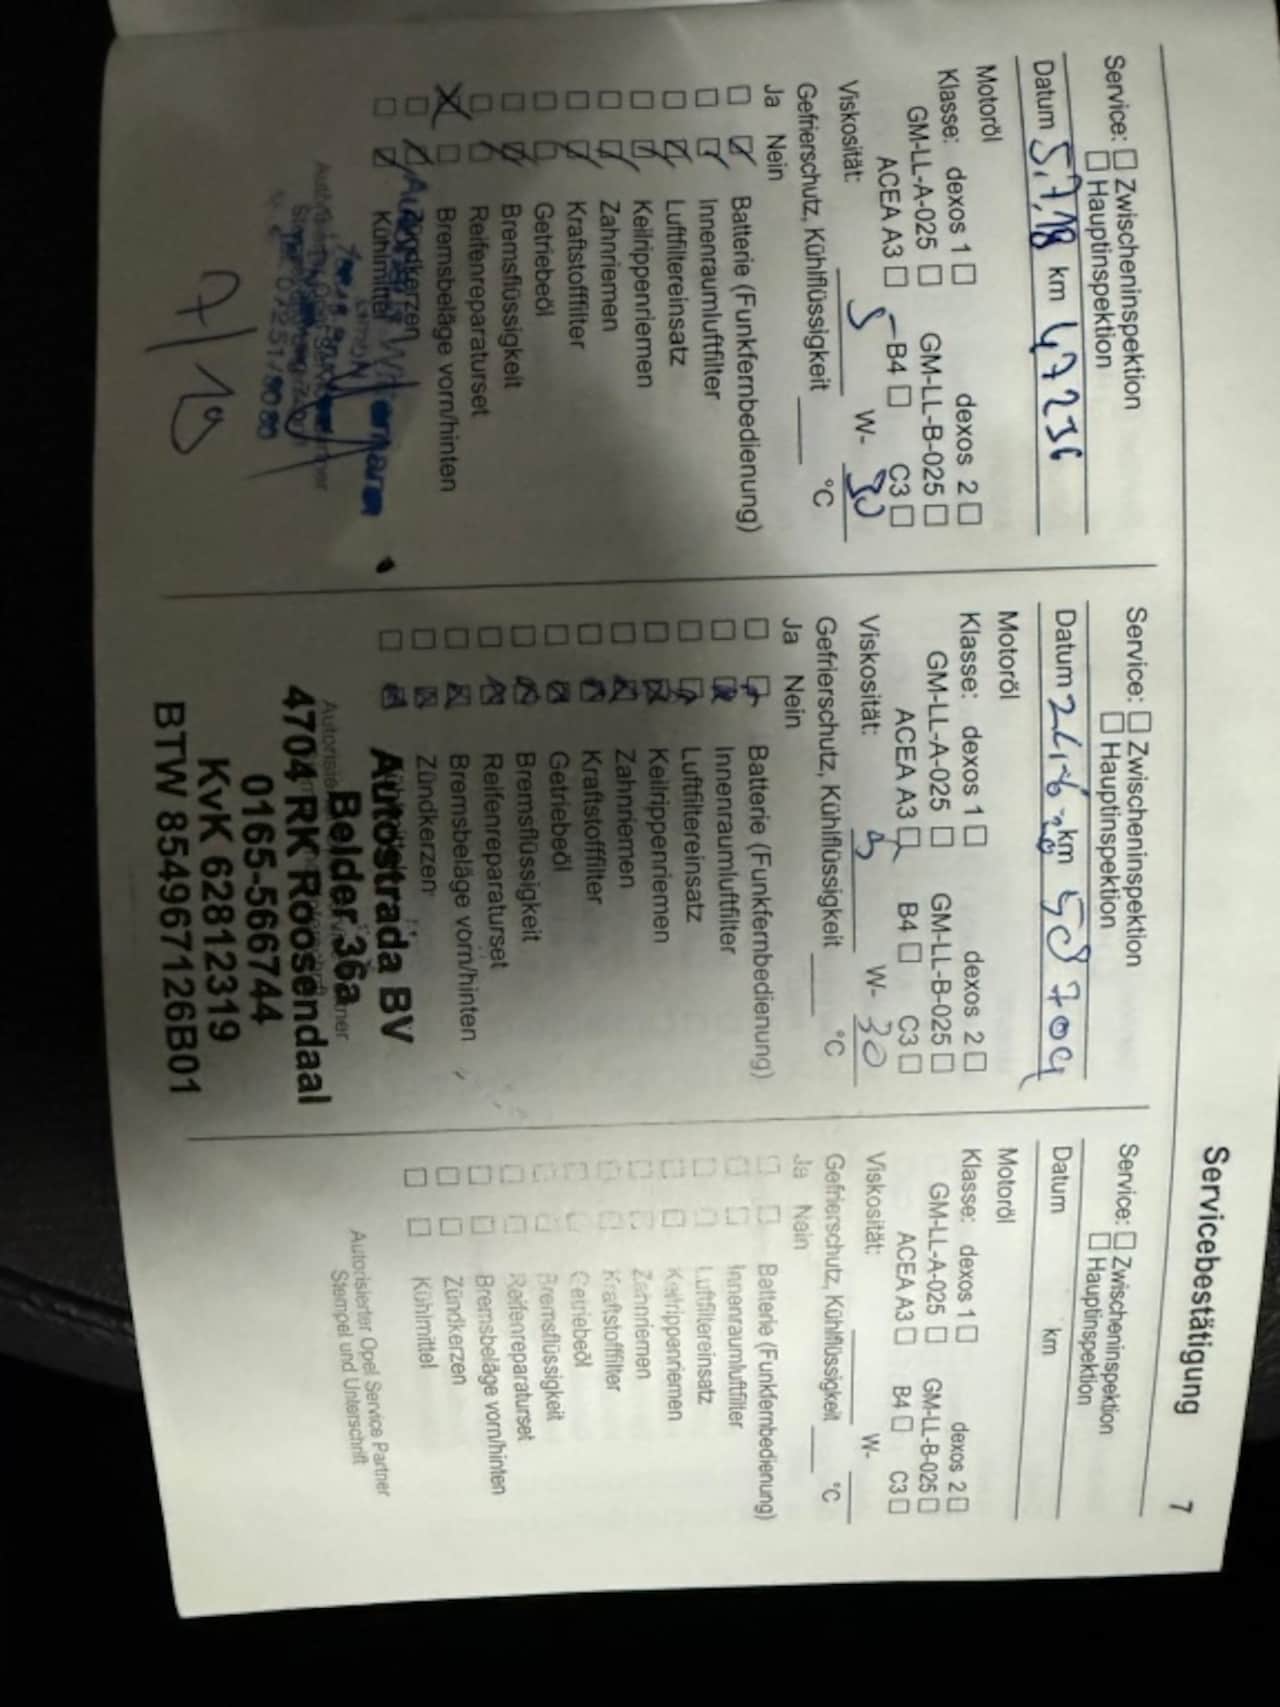 Servicebestätigung 7
Service: Zwischeninspektion
Hauptinspektion
Datum 5.7.18 km 47236
Motoröl
Klasse: dexos 1 dexos 2
GM-LL-A-025 GM-LL-B-025
ACEA A3 B4 C3
Viskosität: 5 W- 30
Gefrierschutz, Kühlflüssigkeit °C
Ja Nein
Batterie (Funkfernbedienung)
Innenraumluftfilter
Luftfiltereinsatz
Keilrippenriemen
Zahnriemen
Kraftstofffilter
Getriebeöl
Bremsflüssigkeit
Reifenreparaturset
Bremsbeläge vorn/hinten
Zündkerzen
Kühlmittel
7/19
Service: Zwischeninspektion
Hauptinspektion
Datum km
Motoröl
Klasse: dexos 1 dexos 2
GM-LL-A-025 GM-LL-B-025
ACEA A3 B4 C3
Viskosität: 5 W- 30
Gefrierschutz, Kühlflüssigkeit °C
Ja Nein
Batterie (Funkfernbedienung)
Innenraumluftfilter
Luftfiltereinsatz
Keilrippenriemen
Zahnriemen
Kraftstofffilter
Getriebeöl
Bremsflüssigkeit
Reifenreparaturset
Bremsbeläge vorn/hinten
Zündkerzen
Autostrada BV
Belder 36a
4704 RK Roosendaal
0165-566744
KvK 62812319
BTW 854967126B01
Service: Zwischeninspektion
Hauptinspektion
Datum km
Motoröl
Klasse: dexos 1 dexos 2
GM-LL-A-025 GM-LL-B-025
ACEA A3 B4 C3
Viskosität: W-
Gefrierschutz, Kühlflüssigkeit °C
Ja Nein
Batterie (Funkfernbedienung)
Innenraumluftfilter
Luftfiltereinsatz
Keilrippenriemen
Zahnriemen
Kraftstofffilter
Getriebeöl
Bremsflüssigkeit
Reifenreparaturset
Bremsbeläge vorn/hinten
Zündkerzen
Kühlmittel
Autorisierter Opel Service Partner
Stempel und Unterschrift